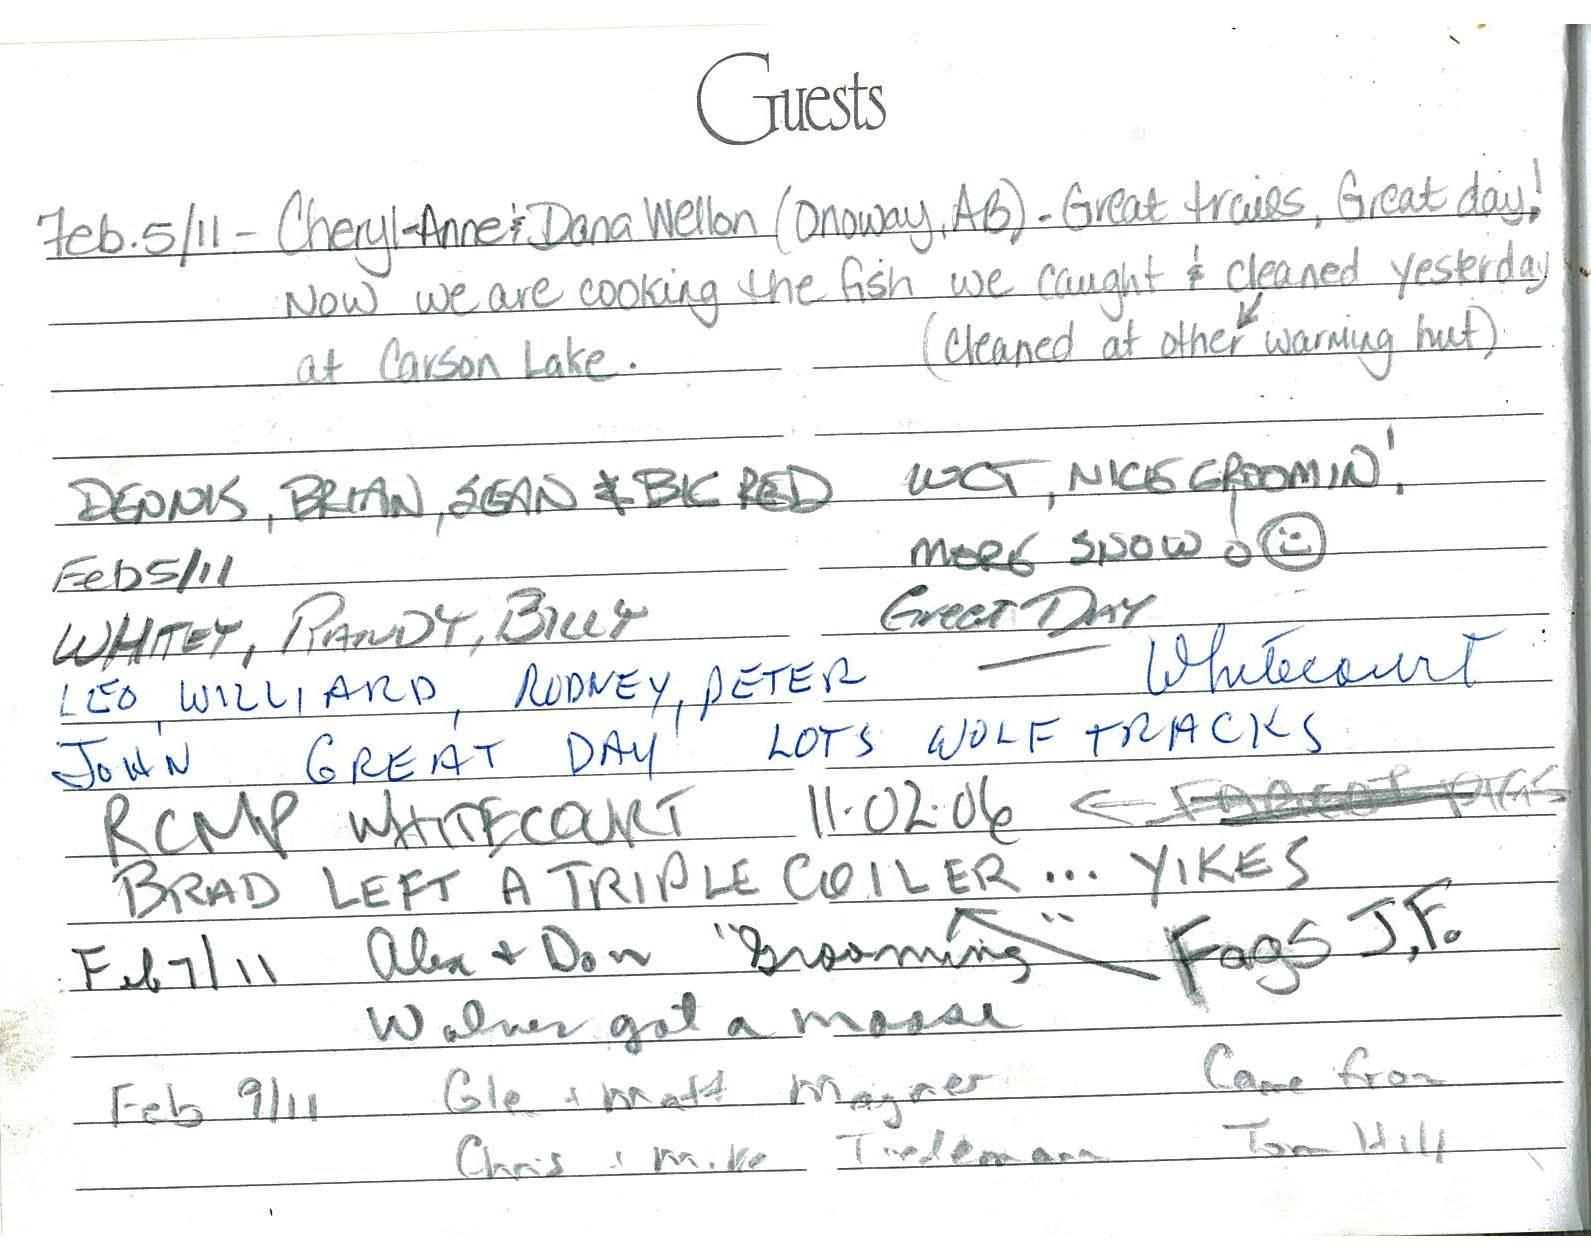 Guests
Feb. 5/11 - Cheryl-Anne & Dana Wellon (Onoway, AB) - Great trails, Great day!
Now we are cooking the fish we caught & cleaned yesterday
at Carson Lake. (cleaned at other warming hut)
DENNIS, BRIAN, SEAN & BIG RED WCT, NICE GROOMIN'!
Feb 5/11 MORE SNOW! ☺
WHITEY, RANDY, BILLY Great DAY
LEO, WILLIARD, RODNEY, PETER — Whitecourt
JOHN GREAT DAY! LOTS WOLF TRACKS
RCMP WHITECOURT 11·02·06 ←
BRAD LEFT A TRIPLE COILER... YIKES
Feb 7/11 Alex + Don "Grooming" Fags J.F.
got a moose
Feb 9/11 Cole + Matt Magner Came from
Chris + Mike Tiedemann Tom Hill